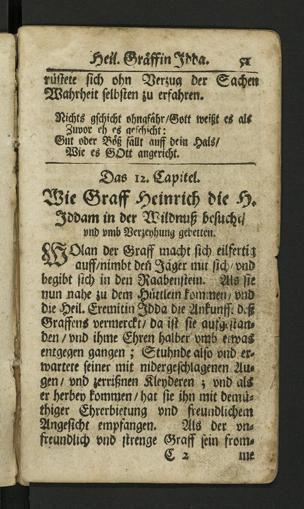 Heil. Gräffin Jdda. 51
rüstete sich ohn Verzug der Sachen
Wahrheit selbsten zu erfahren.
Nichts gschicht ohngefähr/Gott weißt es als
Zuvor eh es geschicht:
Gut oder Böß fällt auff dein Hals/
Wie es GOtt angericht.
Das 12. Capitel.
Wie Graff Heinrich die H.
Jddam in der Wildnuß besucht/
und vmb Verzeyhung gebetten.
WOlan der Graff macht sich eilfertig
auff/nimbt den Jäger mit sich/vnd
begibt sich in den Raabenstein. Als sie
nun nahe zu dem Hüttlein kommen/ vnd
die Heil. Eremitin Jdda die Ankunfft deß
Graffens vermerckt/ da ist sie auffgestan-
den/ vnd ihme Ehren halber vmb etwas
entgegen gangen; Stuhnde also vnd er-
wartete seiner mit nidergeschlagenen Au-
gen/ vnd zerrißnen Kleyderen; vnd als
er herbey kommen/ hat sie ihn mit demü-
thiger Ehrerbietung vnd freundlichem
Angesicht empfangen. Als der vn-
freundlich vnd strenge Graff sein from-
C 2 me